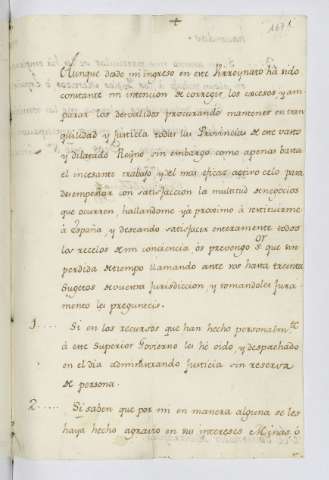 167
Aunque desde mi ingreso en este Virreynato há sido
constante mi intencion de corregir los excesos y am-
parar los desvalidos procurando mantener en tran-
quilidad y Justicia todas las Provincias de este vasto
y dilatado Reyno sin embargo como apenas basta
el incesante trabajo y el mas eficaz activo celo para
desempeñar con satisfaccion la multitud de negocios
que ocurren hallandome ya proximo á restituirme
á España, y deseando satisfacer enteramente todos
los recelos de mi conciencia, os prevengo que sin
perdida de tiempo llamando ante vos hasta treinta
Sugetos de vuestra Jurisdiccion y tomandoles Jura-
mento les pregunteis.
1.... Si en los recursos que han hecho personalmte
á este Superior Govierno les hé oido, y despachado
en el dia administrando Justicia sin reserva
de persona.
2.... Si saben que por mi en manera alguna se les
haya hecho agravio en sus intereses Minas ó